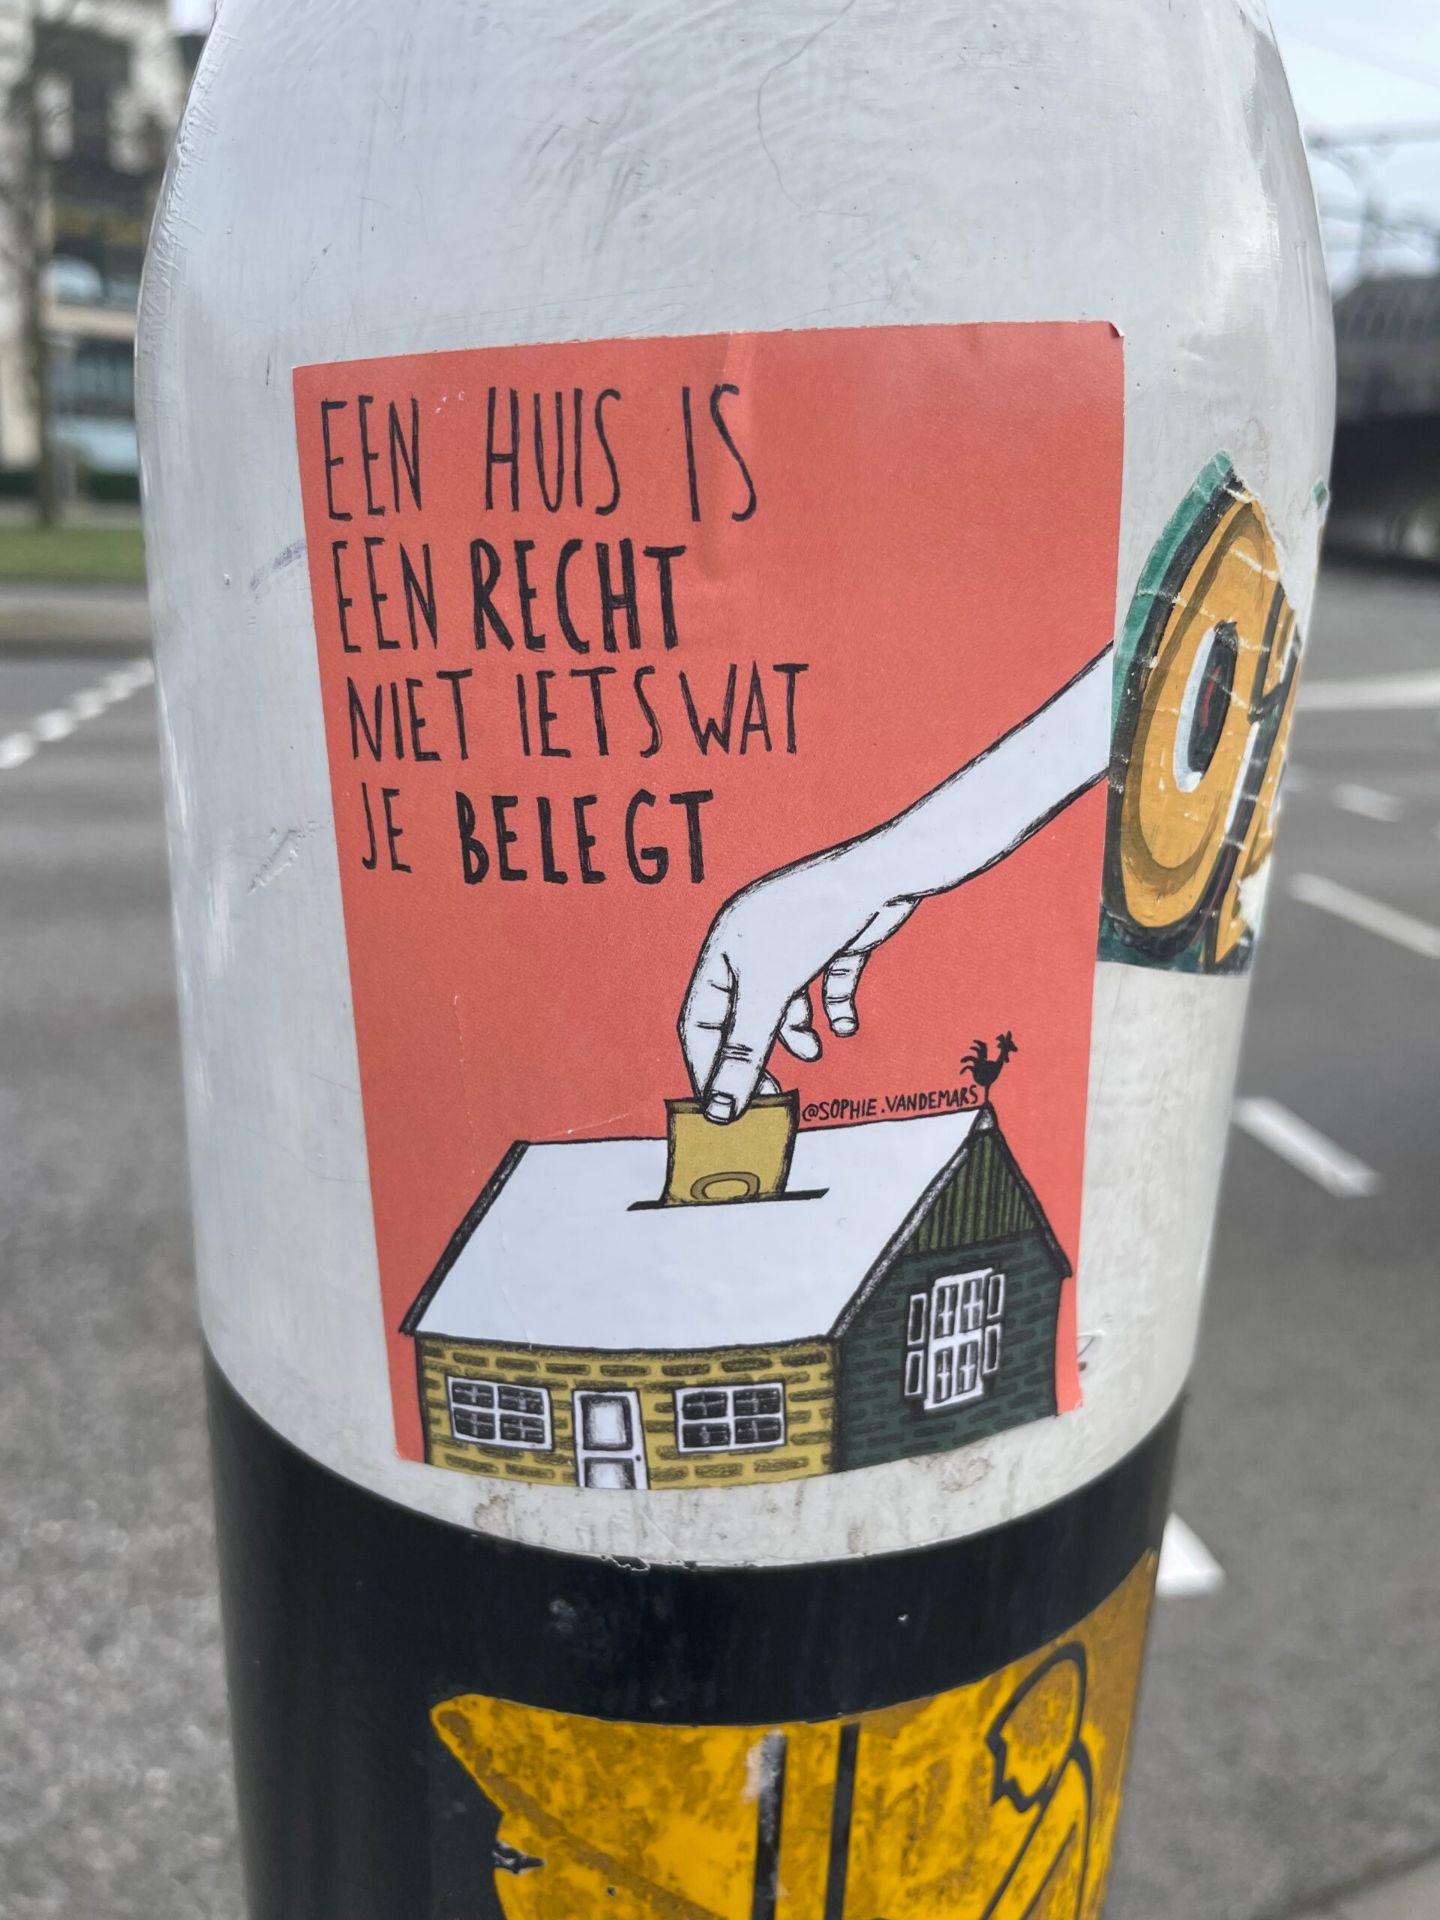 EEN HUIS IS
EEN RECHT
NIET IETS WAT
JE BELEGT
@SOPHIE.VANDEMARS